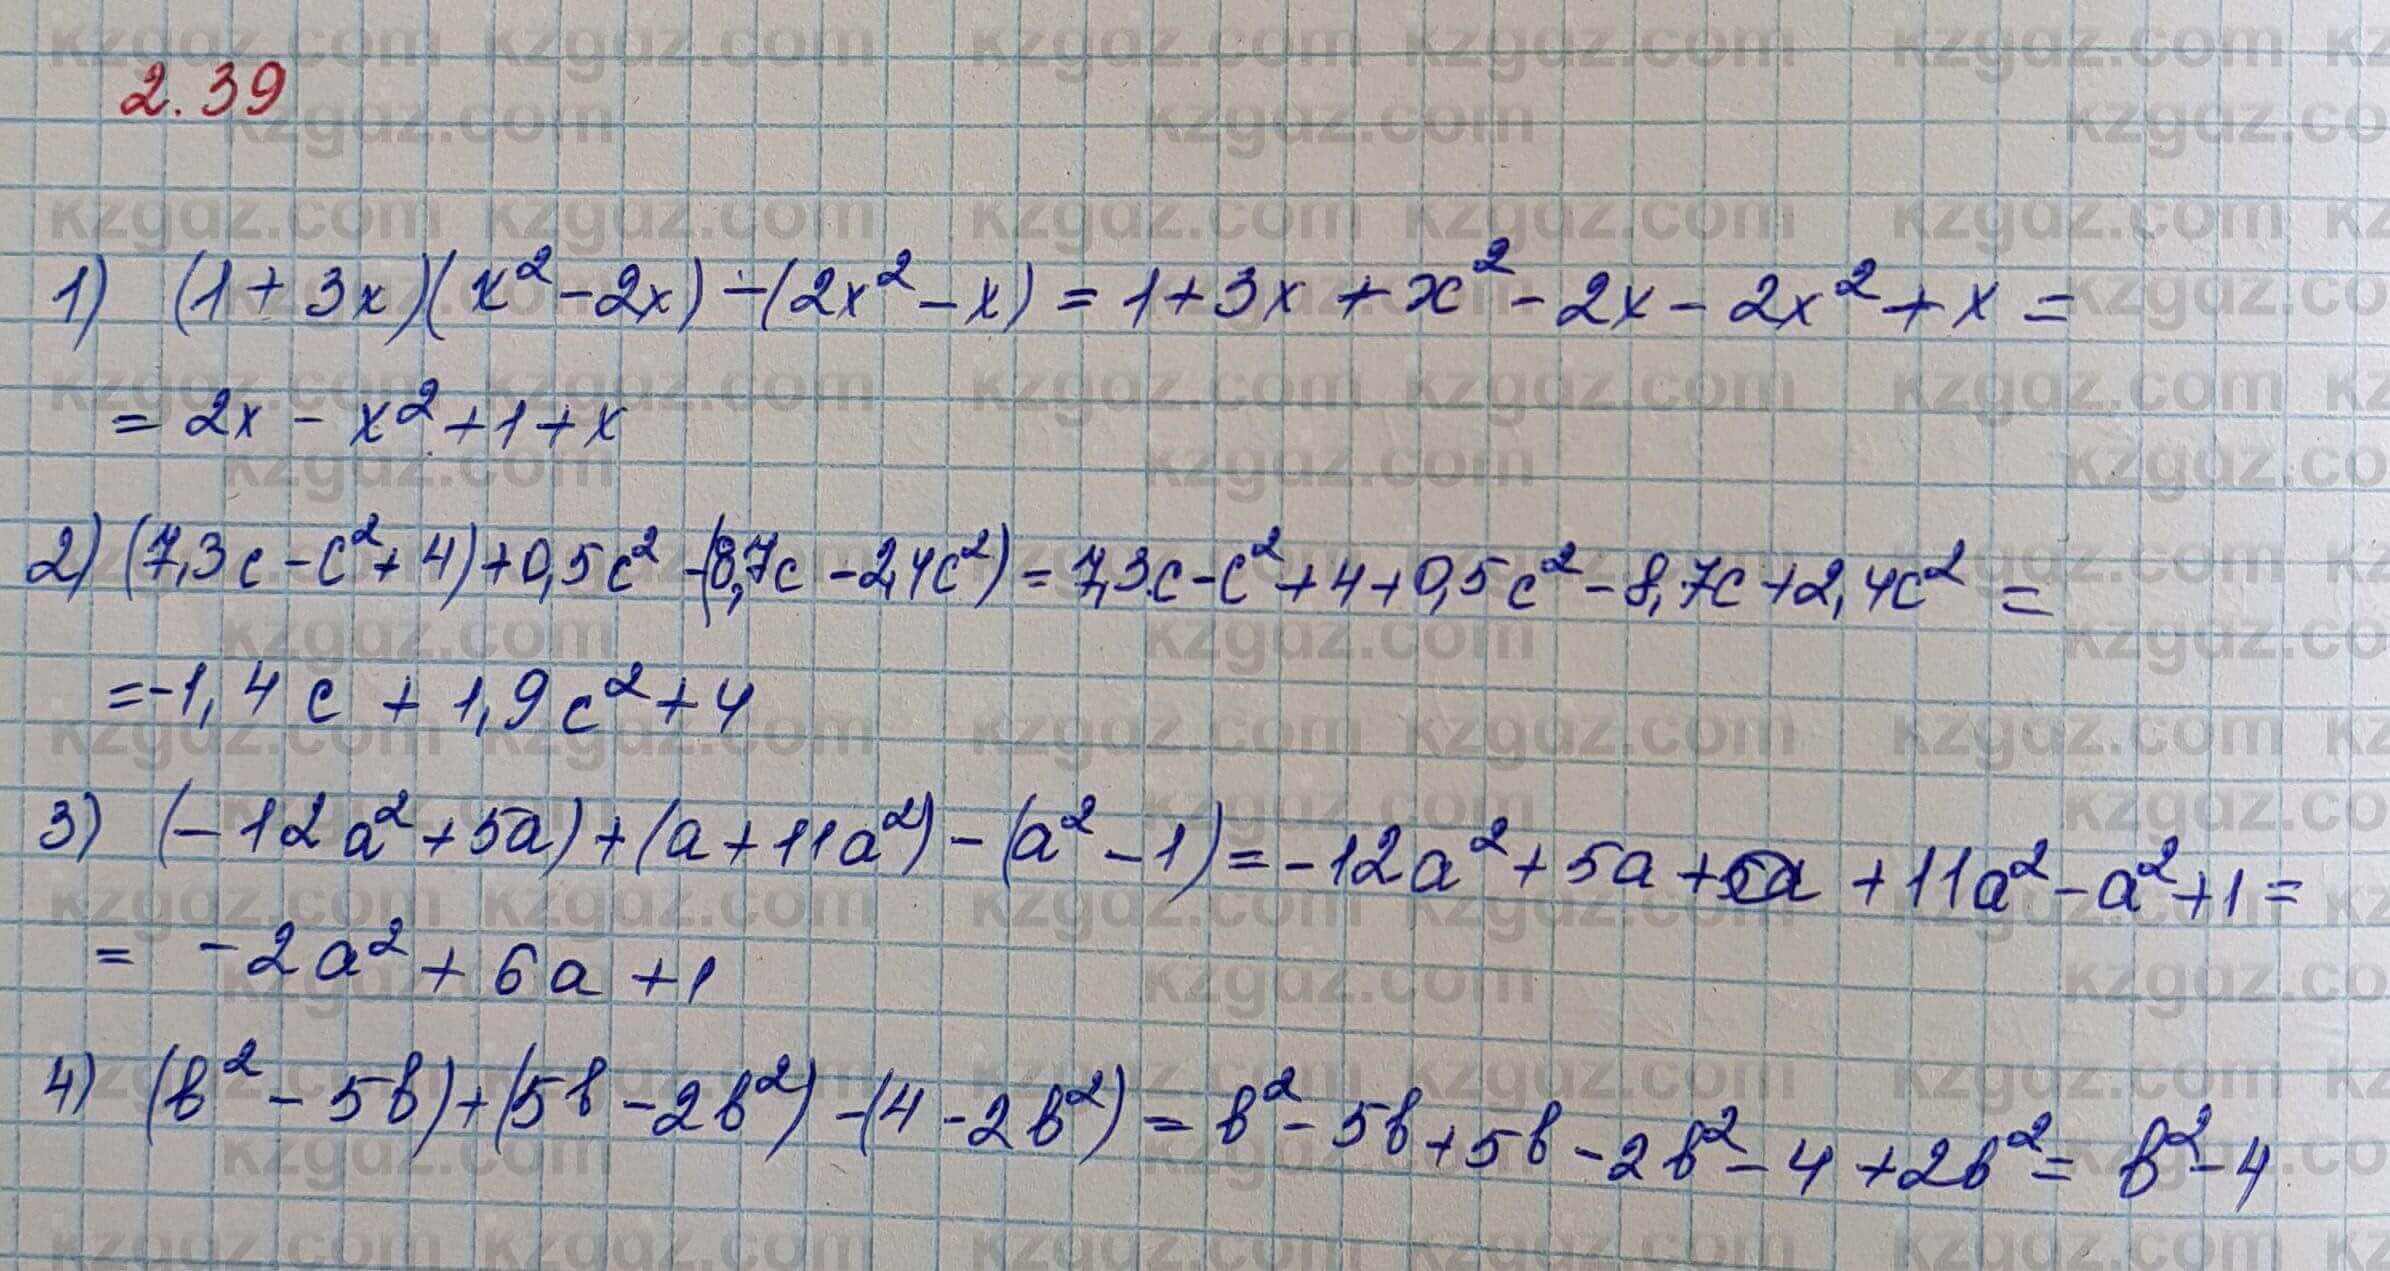 2.39
1) (1+3x)(x²-2x)-(2x²-x)=1+3x+x²-2x-2x²+x=
=2x-x²+1+x
2) (7,3c-c²+4)+0,5c²-(8,7c-2,4c²)=7,3c-c²+4+0,5c²-8,7c+2,4c²=
=-1,4c+1,9c²+4
3) (-12a²+5a)+(a+11a²)-(a²-1)=-12a²+5a+a+11a²-a²+1=
=-2a²+6a+1
4) (в²-5в)+(5в-2в²)-(4-2в²)=в²-5в+5в-2в²-4+2в²=в²-4
kzgdz.com